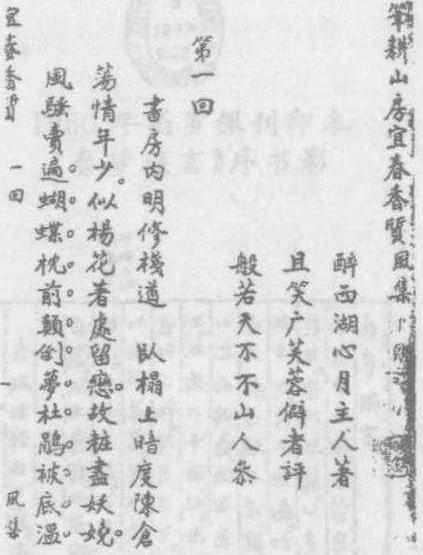 筆耕山房宜春香質風集
醉西湖心月主人著
且笑广芙蓉僻者評
般若天不不山人參
第一回
書房内明修棧道 臥榻上暗度陳倉
蕩情年少。似楊花着處留戀。故粧盡妖娆。
風騷賣遍。蝴蝶枕前顛倒。夢杜鵑被底溫。
宜春香質 一回 一 風集